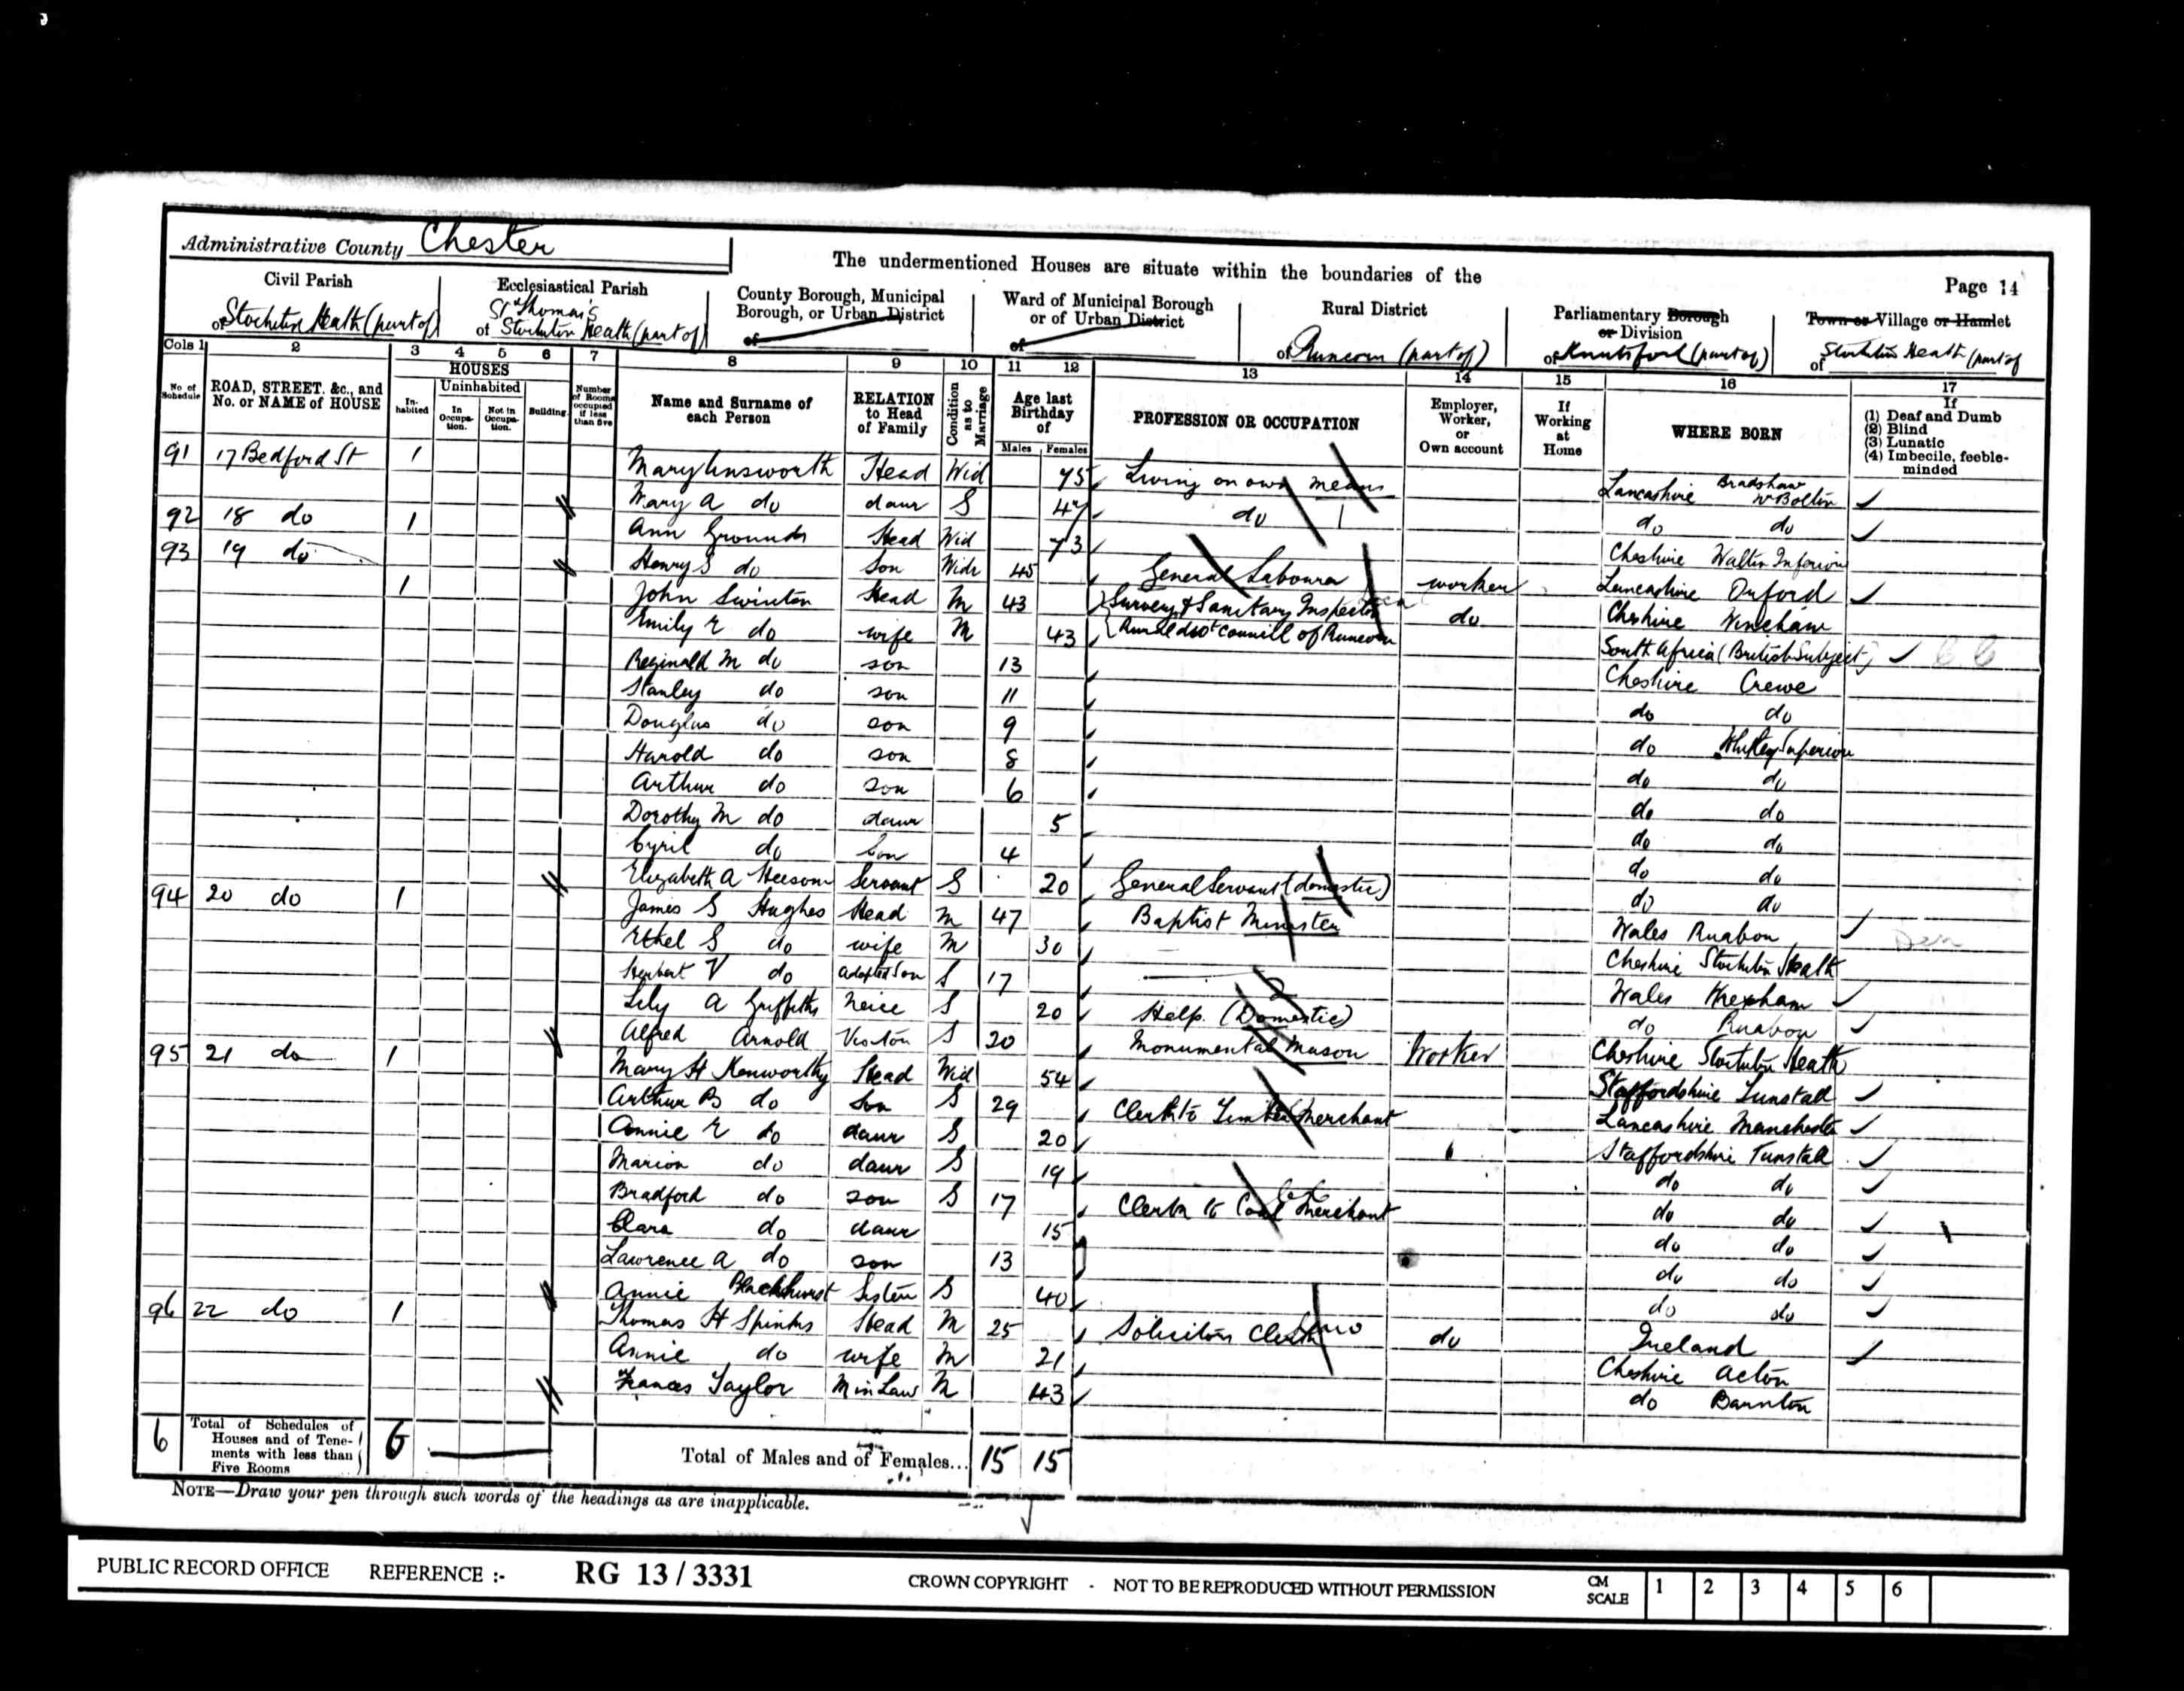 Administrative County Chester
The undermentioned Houses are situate within the boundaries of the
Page 14
Civil Parish
of Stockton Heath (part of)
Ecclesiastical Parish
St Thomas's
of Stockton Heath (part of)
County Borough, Municipal
Borough, or Urban District
of
Ward of Municipal Borough
or of Urban District
of
Rural District
of Runcorn (part of)
Parliamentary Borough
or Division
of Knutsford (part of)
Town or Village or Hamlet
of Stockton Heath (part of
Cols 1 2 3 4 5 6 7 8 9 10 11 12 13 14 15 16 17
No. of Schedule
ROAD, STREET, &c., and No. or NAME of HOUSE
HOUSES
Inhabited
Uninhabited
In Occupation.
Not in Occupation.
Building
Number of Rooms occupied if less than five
Name and Surname of each Person
RELATION to Head of Family
Condition as to Marriage
Age last Birthday of
Males Females
PROFESSION OR OCCUPATION
Employer, Worker, or Own account
If Working at Home
WHERE BORN
If
(1) Deaf and Dumb
(2) Blind
(3) Lunatic
(4) Imbecile, feeble-minded
91 17 Bedford St 1 Mary Unsworth Head Wid 75 Living on own means Lancashire Bradshaw Nr Bolton
Mary A do daur S 47 do do do
92 18 do 1 Ann Grounds Head Wid 73 Cheshire Walton Inferior
Henry S do Son Widr 45 General Labourer worker Lancashire Orford
93 19 do 1 John Swinton Head M 43 Survey & Sanitary Inspector do Cheshire Wincham
Emily E do wife M 43 Rural dist Council of Runcorn South Africa (British Subject)
Reginald M do son 13 Cheshire Crewe
Stanley do son 11 do do
Douglas do son 9 do Whitley Superior
Harold do son 8 do do
Arthur do son 6 do do
Dorothy M do daur 5 do do
Cyril do Son 4 do do
Elizabeth A Heesom Servant S 20 General Servant (domestic) do do
94 20 do 1 James S Hughes Head M 47 Baptist Minister Wales Ruabon
Ethel S do wife M 30 Cheshire Stockton Heath
Herbert V do Adopted Son S 17 Wales Wrexham
Lily A Griffiths Neice S 20 Help (Domestic) do Ruabon
Alfred Arnold Visitor S 20 Monumental Mason Worker Cheshire Stockton Heath
95 21 do 1 Mary H Kenworthy Head Wid 54 Staffordshire Tunstall
Arthur B do Son S 29 Clerk to Timber Merchant Lancashire Manchester
Annie E do daur S 20 Staffordshire Tunstall
Marion do daur S 19 do do
Bradford do son S 17 Clerk to Coal Merchant do do
Clara do daur 15 do do
Lawrence A do son 13 do do
Annie Blackhurst Sister S 40 do do
96 22 do 1 Thomas H Spinks Head M 25 Solicitors Clerk do Ireland
Annie do wife M 21 Cheshire Acton
Frances Taylor M in Law M 43 do Barnton
6 Total of Schedules of Houses and of Tenements with less than Five Rooms 6 Total of Males and of Females... 15 15
NOTE—Draw your pen through such words of the headings as are inapplicable.
PUBLIC RECORD OFFICE REFERENCE :- RG 13 / 3331 CROWN COPYRIGHT - NOT TO BE REPRODUCED WITHOUT PERMISSION CM SCALE 1 2 3 4 5 6